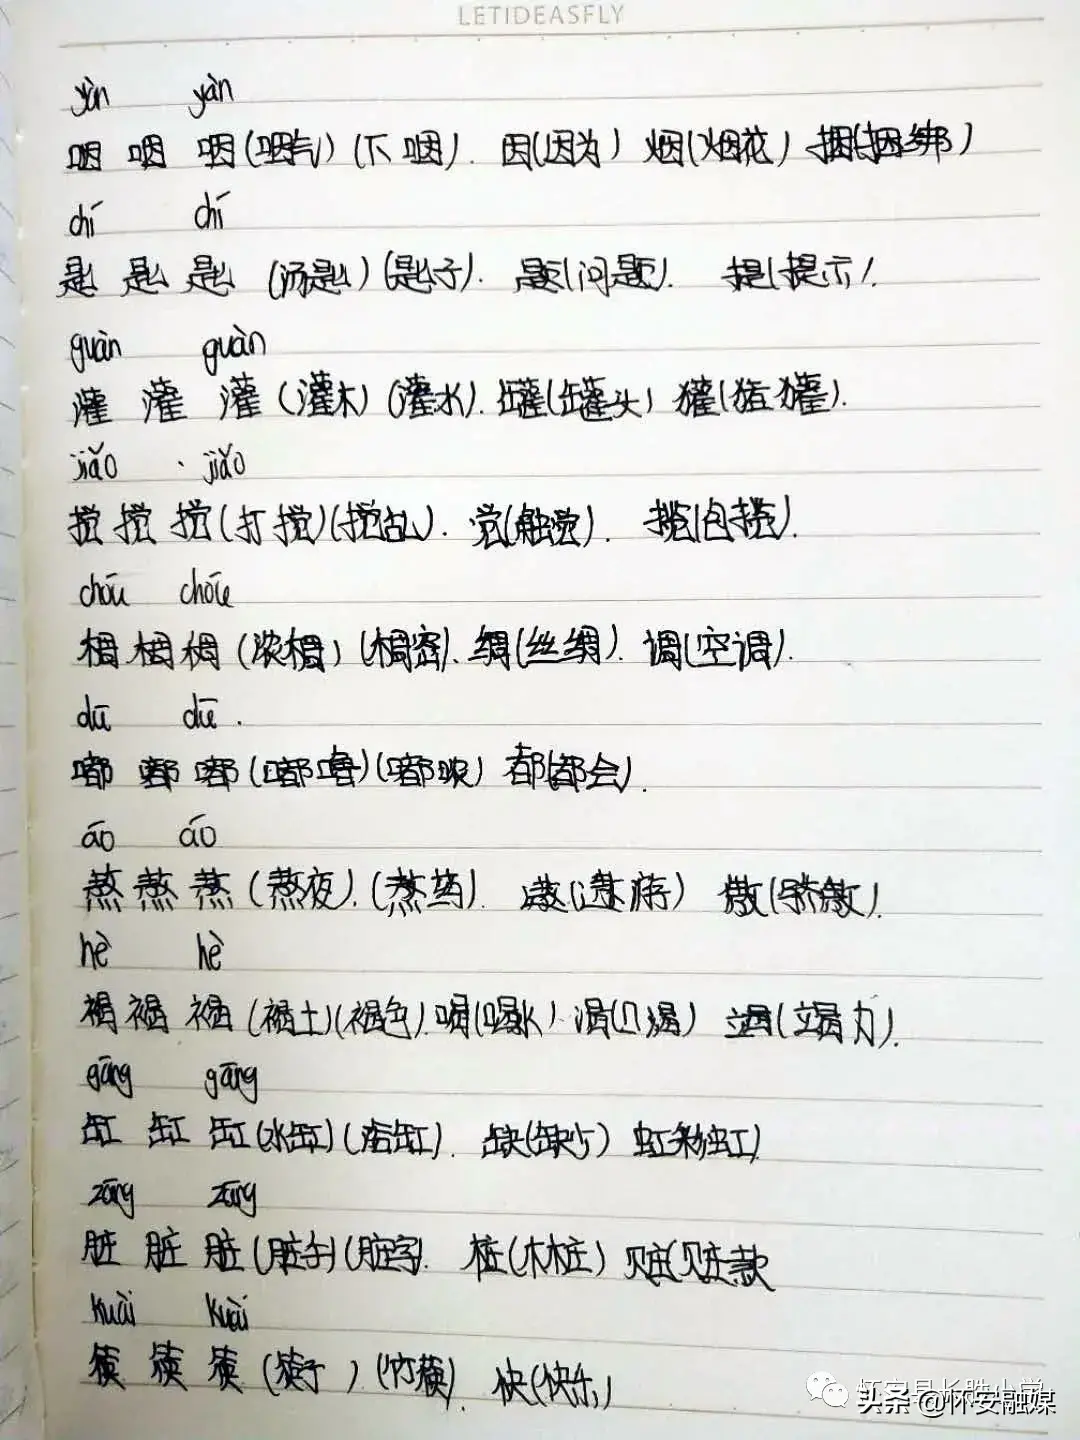 LETIDEASFLY
yàn yàn
咽 咽 咽(咽气)(下咽). 因(因为) 烟(烟花) 捆(捆绑)
chí chí
匙 匙 匙 (汤匙)(匙子). 题(问题). 提(提示).
guàn guàn
灌 灌 灌 (灌木)(灌水). 罐(罐头) 獾(猪獾).
jiǎo jiǎo
搅 搅 搅(打搅)(搅乱). 觉(触觉). 揽(包揽).
chóu chóu
稠 稠 稠 (浓稠)(稠密). 绸(丝绸). 调(空调).
dū dū
嘟 嘟 嘟(嘟噜)(嘟哝) 都(都会).
áo áo
熬 熬 熬 (熬夜).(熬药). 遨(遨游) 傲(骄傲).
hè hè
褐 褐 褐 (褐土)(褐色). 喝(喝水) 渴(口渴) 竭(竭力).
gāng gāng
缸 缸 缸(水缸)( 缸). 缺(缺少) 虹(彩虹)
zāng zāng
脏 脏 脏(脏 )(脏字). 桩(木桩) 赃(赃款
kuài kuài
筷 筷 筷 (筷子)(竹筷) 快(快乐)
怀安县长胜小学
头条 @怀安融媒